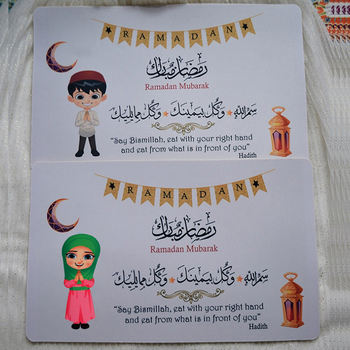 RAMADAN
رمضان مبارك
Ramadan Mubarak
سم الله وكل بيمينك وكل مما يليك
"Say Bismillah, eat with your right hand
and eat from what is in front of you"
Hadith
RAMADAN
رمضان مبارك
Ramadan Mubarak
سم الله وكل بيمينك وكل مما يليك
"Say Bismillah, eat with your right hand
and eat from what is in front of you"
Hadith